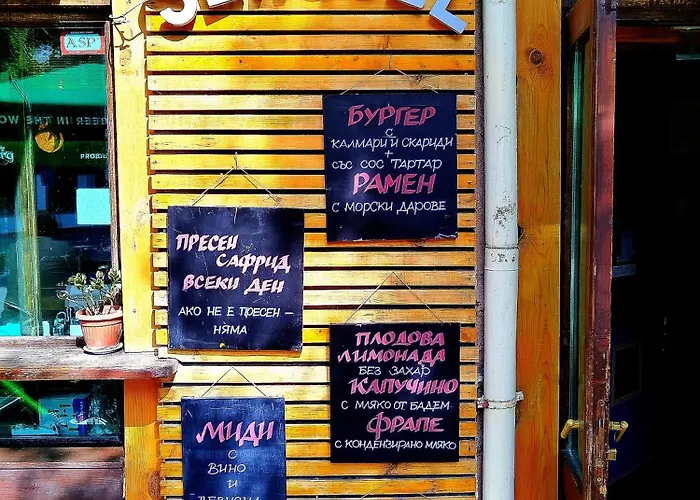 ASP
БУРГЕР
С
КАЛМАРИ И СКАРИДИ
+
СЪС СОС ТАРТАР
РАМЕН
С МОРСКИ ДАРОВЕ
ПРЕСЕН
САФРИД
ВСЕКИ ДЕН
АКО НЕ Е ПРЕСЕН –
НЯМА
ПЛОДОВА
ЛИМОНАДА
БЕЗ ЗАХАР
КАПУЧИНО
С МЛЯКО ОТ БАДЕМ
ФРАПЕ
С КОНДЕНЗИРАНО МЛЯКО
МИДИ
С
ВИНО
И